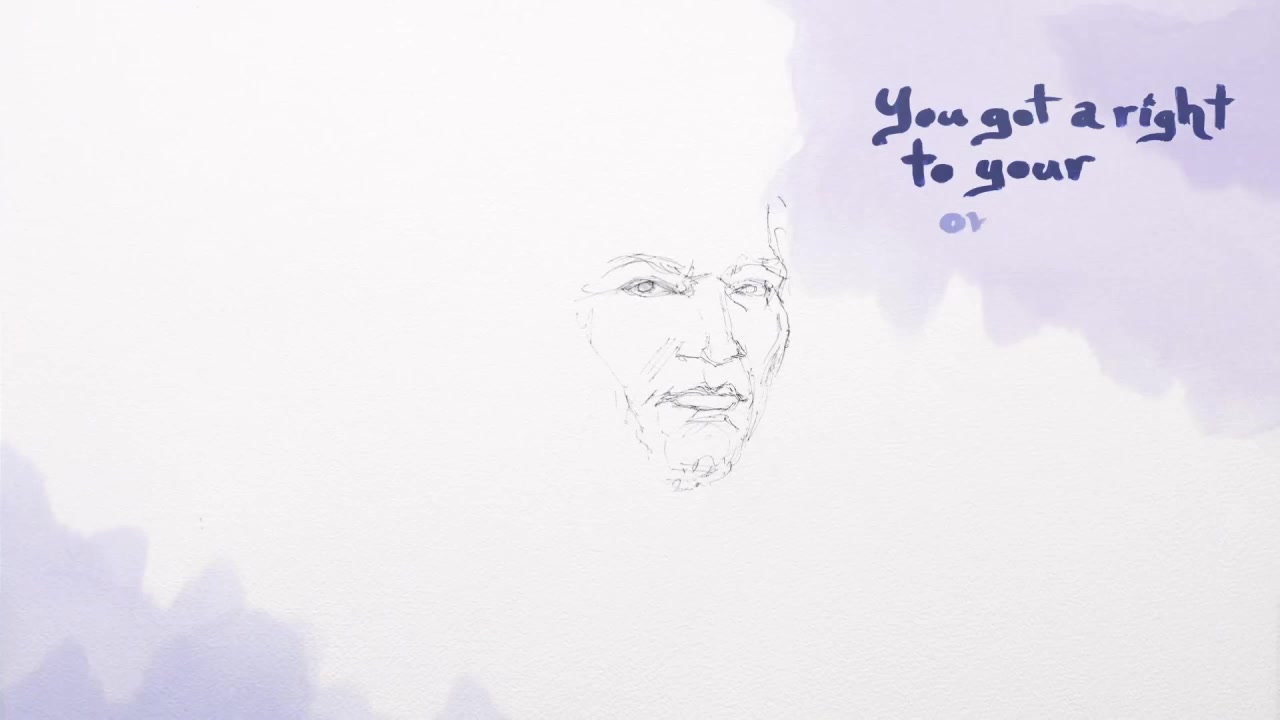 You got a right
to your
or